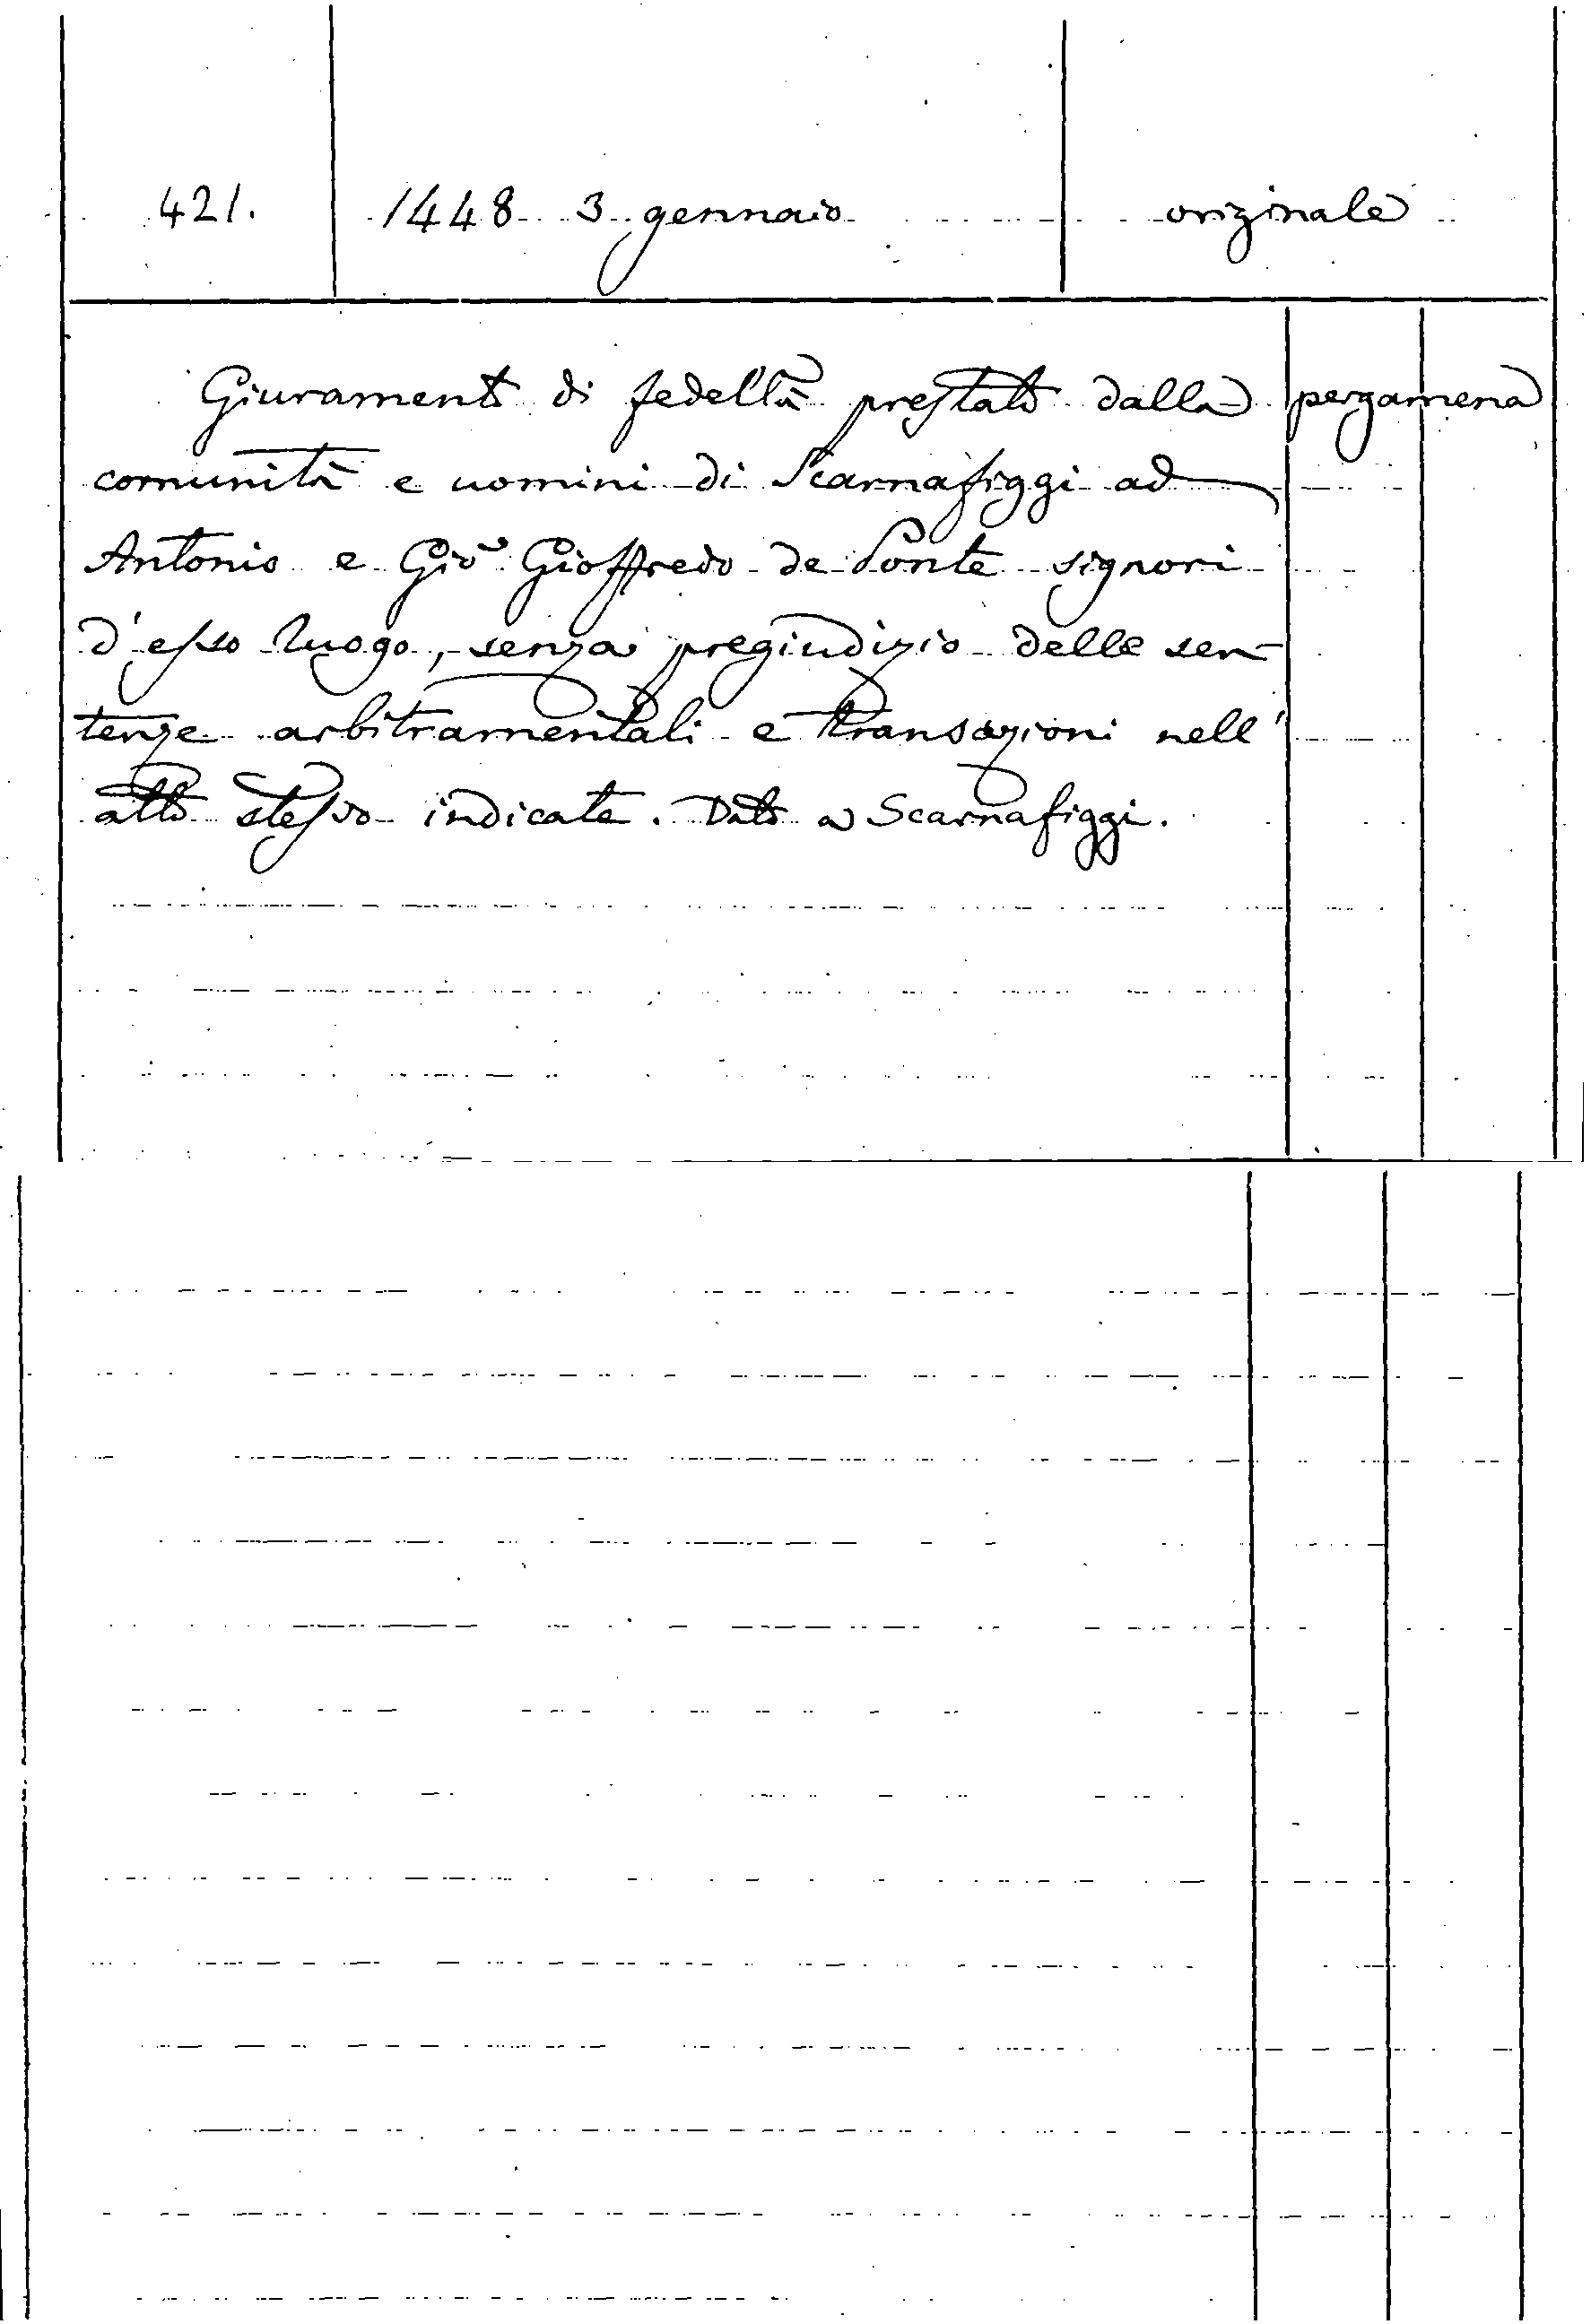 421. 1448 3 gennaio originale
Giuramento di fedeltà prestato dalla pergamena
comunità e uomini di Scarnafiggi ad
Antonio e Gio Gioffredo de Ponte signori
d'esso luogo, senza pregiudizio delle sen-
tenze arbitramentali e transazioni nell'
atto stesso indicate. Dato a Scarnafiggi.